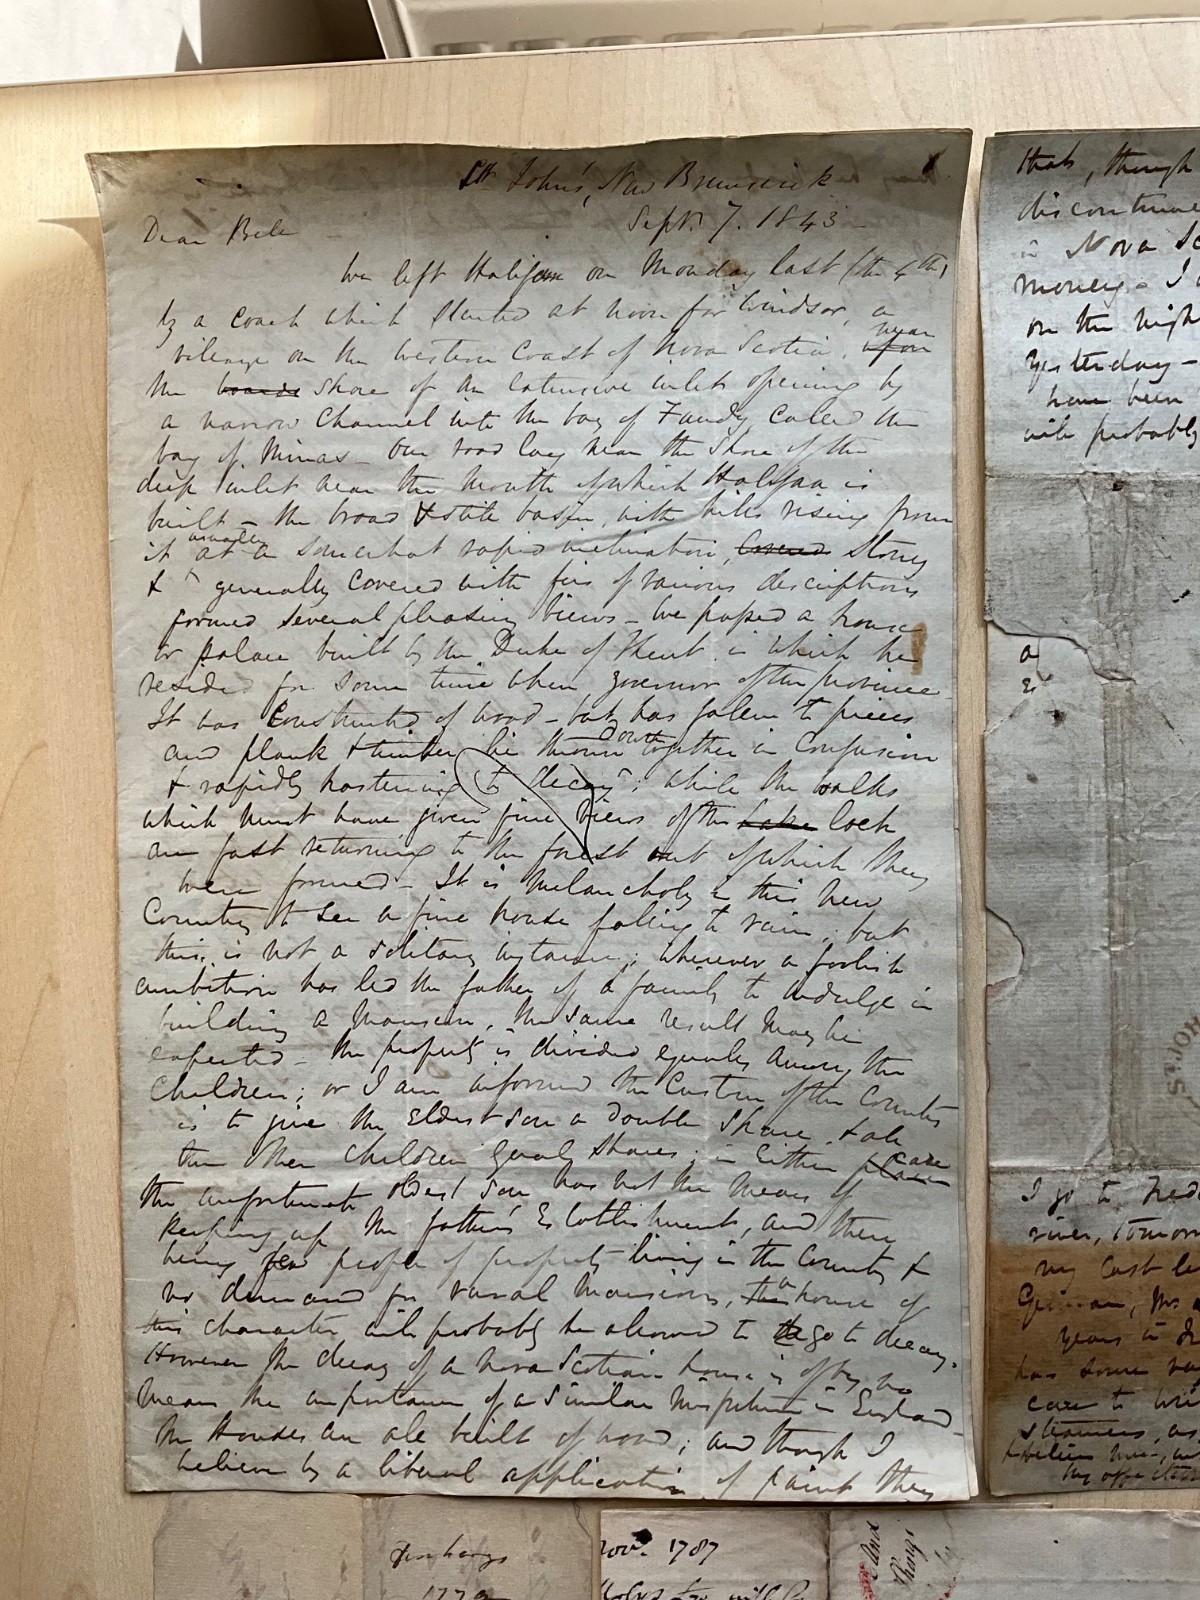 St John's, New Brunswick
Sept. 7. 1843
Dear Bell
We left Halifax on Monday last (the 4th)
by a coach which started at noon for Windsor, a
village on the western coast of Nova Scotia, upon near
the boards shore of an extensive inlet opening by
a narrow channel into the bay of Fundy called the
bay of Minas - Our road lay near the shore of the
deep inlet near the mouth of which Halifax is
built - the broad & still basin, with hills rising from
it at a somewhat rapid inclination, covered stony
& usually generally covered with firs of various descriptions
formed several pleasing views - We passed a house
or palace built by the Duke of Kent in which he
resided for some time when governor of the province
It was constructed of wood - but has fallen to pieces
and plank & timber lie thrown down together in confusion
& rapidly hastening to decay; while the walks
which must have given fine views of the Lake loch
are fast returning to the forest out of which they
were formed - It is melancholy in this new
Country to see a fine house falling to ruin; but
this is not a solitary instance; wherever a foolish
ambition has led the father of a family to indulge in
building a mansion, the same result may be
expected - The property is divided equally among the
Children; or I am informed the Custom of the Country
is to give the Eldest son a double share & all
the other children equal shares; in either case
the unfortunate oldest son has not the means of
keeping up the father's Establishment, and there
being few people of property living in the Country &
no demand for rural mansions, the a house of
this character will probably be allowed to go to decay.
However the decay of a Nova Scotian house is of by no
means the importance of a similar misfortune in England
The Houses are all built of wood; and though I
believe by a liberal application of paint they
that, though
discontinue
in Nova Sc
money - I
on the nigh
Yesterday -
have been
will probably
I go to Fred
river, tomorro
my last le
German, Mrs
years in
has some
care to
steamers, as
Nov. 1787